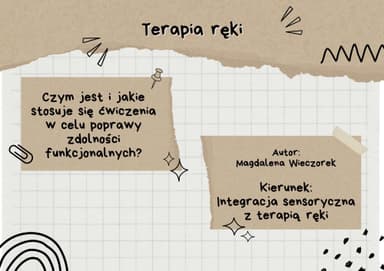 Terapia ręki
Czym jest i jakie
stosuje się ćwiczenia
w celu poprawy
zdolności
funkcjonalnych?
Autor:
Magdalena Wieczorek
Kierunek:
Integracja sensoryczna
z terapią ręki